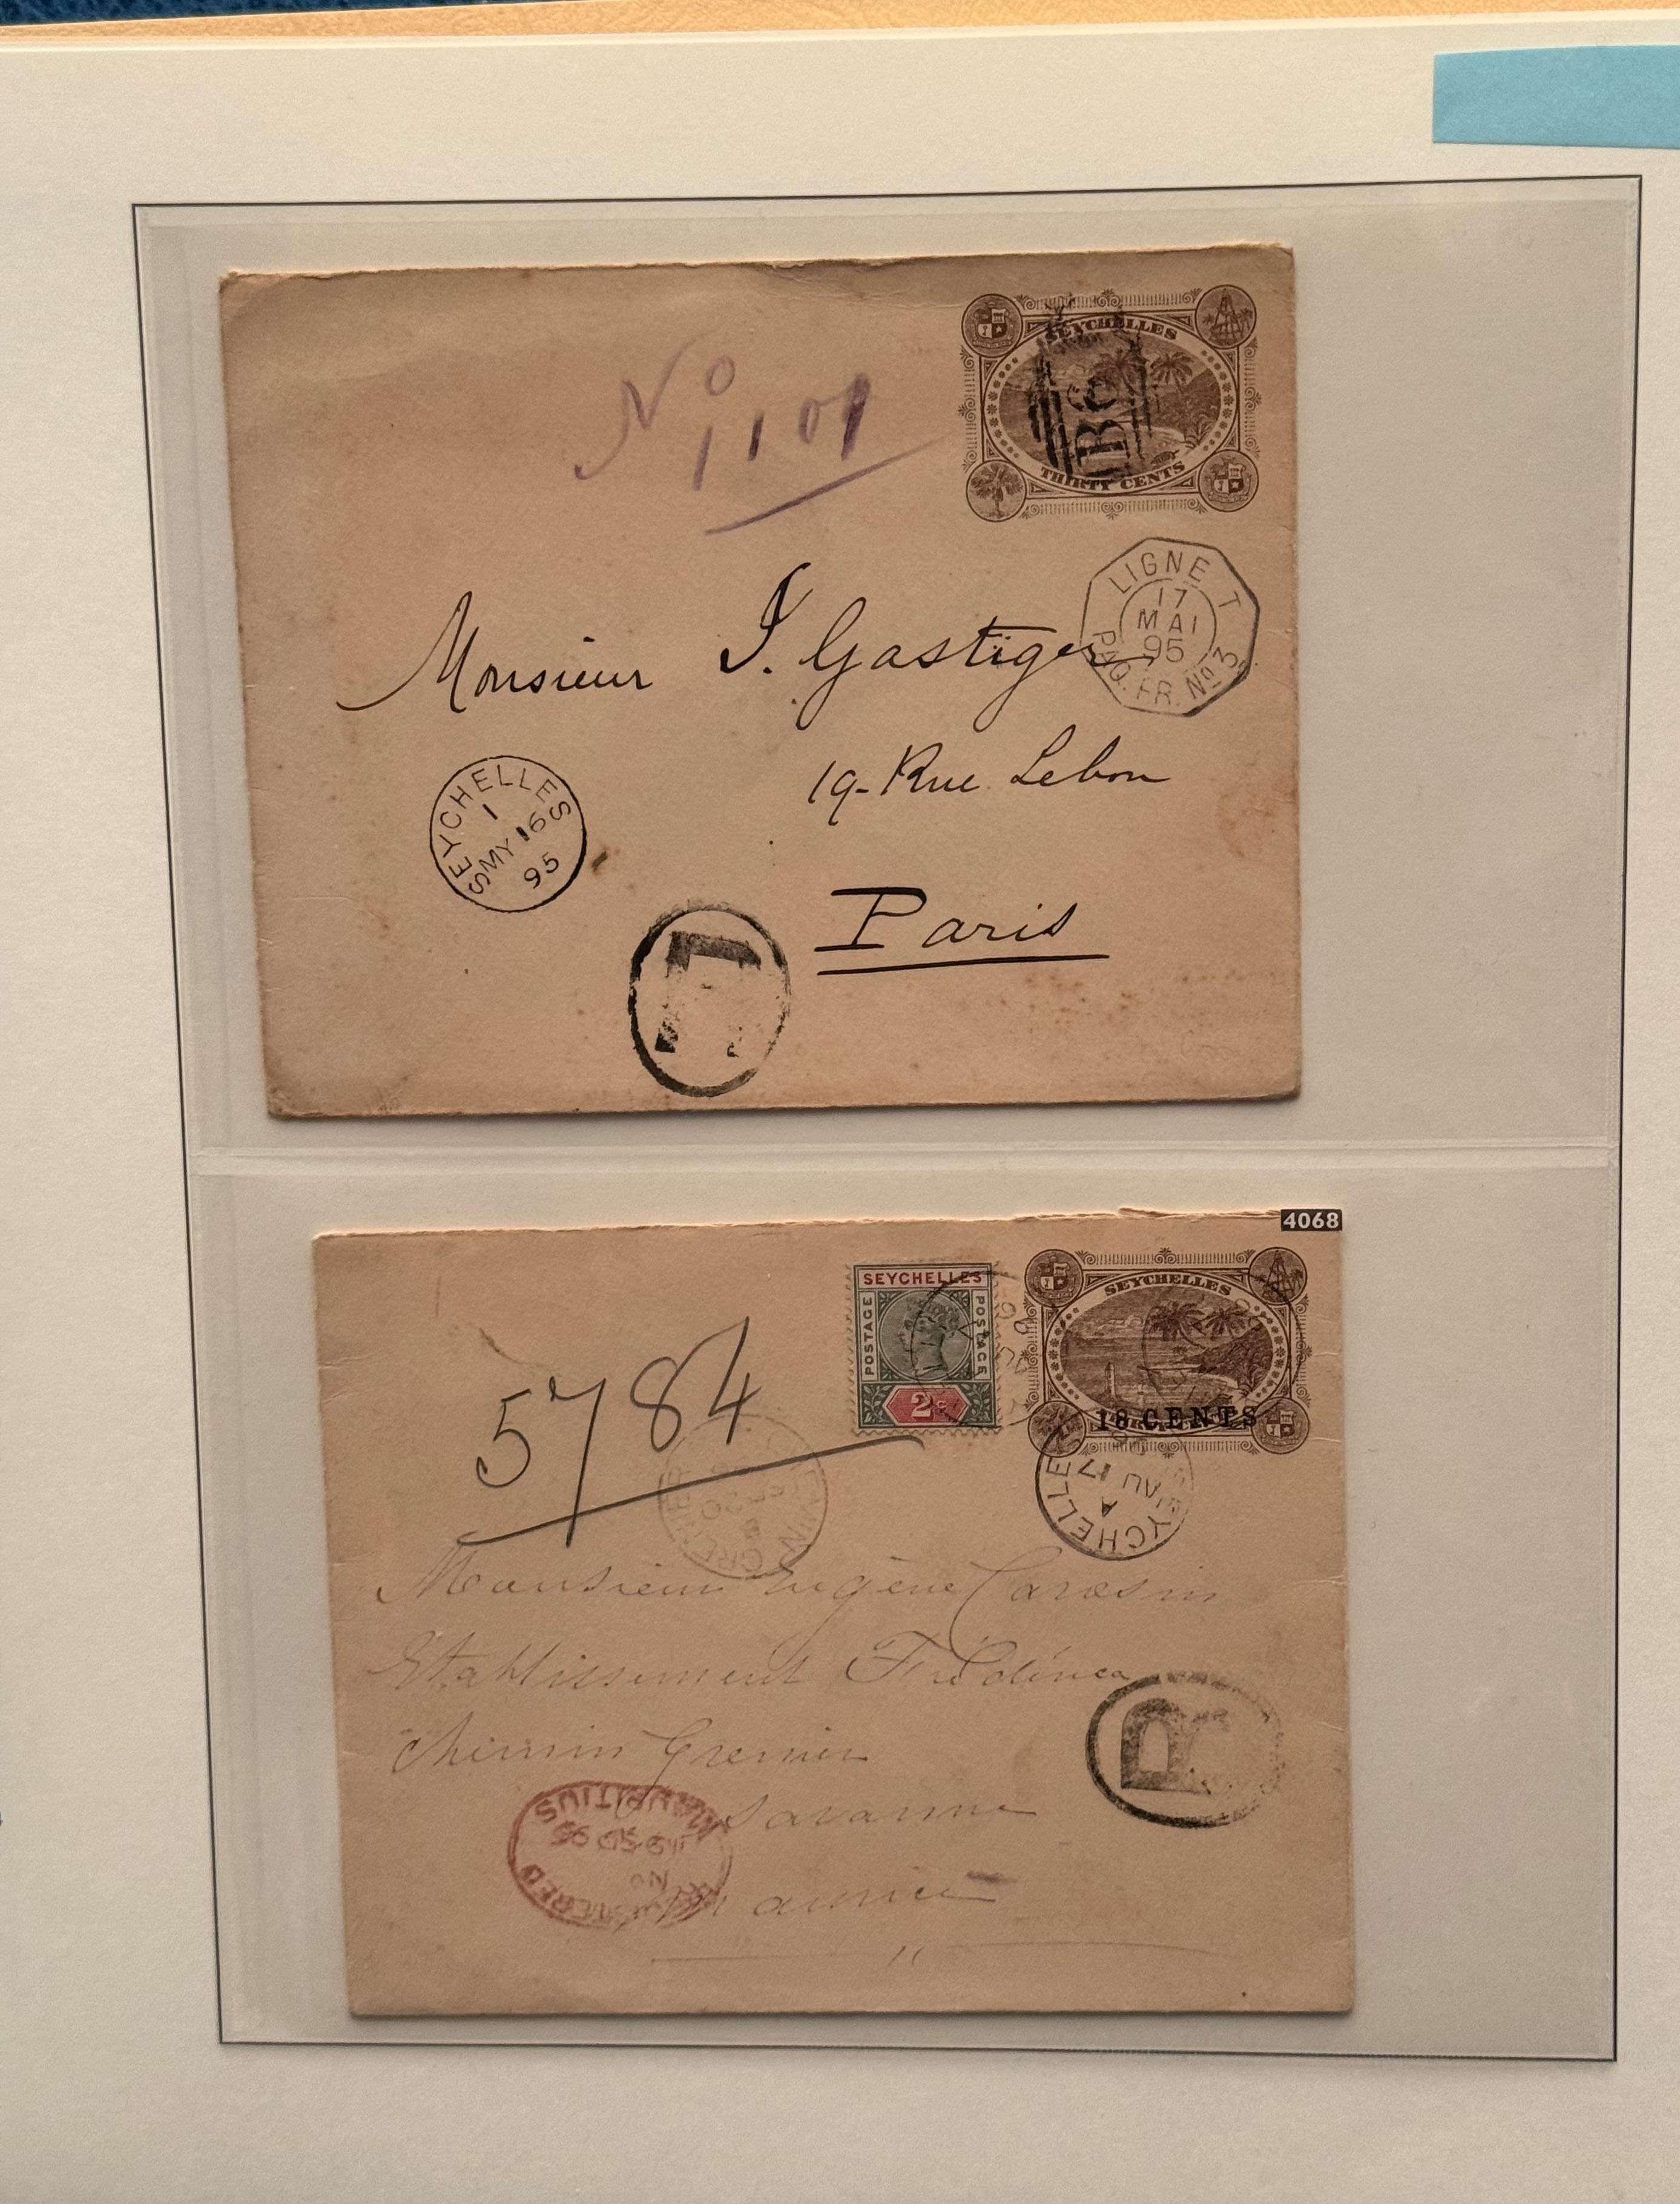 SEYCHELLES
B64
THIRTY CENTS
No 1101
LIGNE T
17
MAI
95
PAQ. FR. No 3
Monsieur J. Gastiger
19 - Rue Lebon
Paris
SEYCHELLES
1
MY 16
95
R
4068
SEYCHELLES
POSTAGE
POSTAGE
2c
SEYCHELLES
18 CENTS
5784
SEYCHELLES
A
AU 17
GRENIER
SE 20
Monsieur Eugène
Etablissement
Chemin Grenier
Savanne
Maurice
R
REGISTERED
MAURITIUS